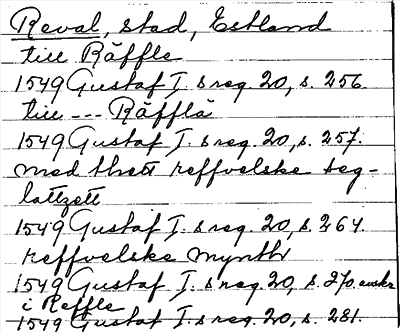 Reval, stad, Estland
till Räffle
1549 Gustaf I. s reg. 20, s. 256.
till --- Räfflä
1549 Gustaf I. s reg. 20, s. 257.
med thett reffvelske seg-
lattzett
1549 Gustaf I. s reg. 20, s. 264.
reffvelske mynthr
1549 Gustaf I. s reg. 20, s. 270.
i Reffle
1549 Gustaf I. s reg. 20, s. 281.